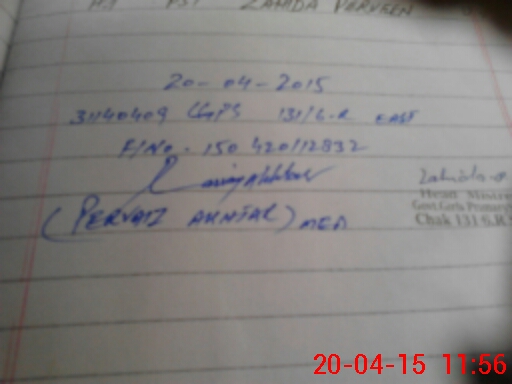 PST ZAHIDA PERVEEN
20-04-2015
31140409 GGPS 131/6-R EAST
F/No. 150420112832
(PERVAIZ AKHTAR) MEA
Head Mistress
Govt Girls Primary
Chak 131 6.R
20-04-15 11:56